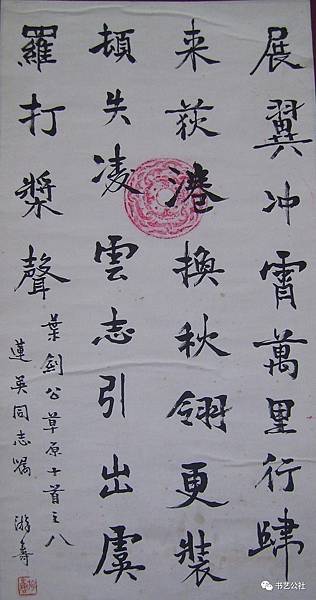 展翼冲霄萬里行肆
来荻港換秋翎更裝
頓失凌雲志引出虞
羅打槳聲
葉劍公草原十首之八
蓮英同志嘱 游壽
书艺公社